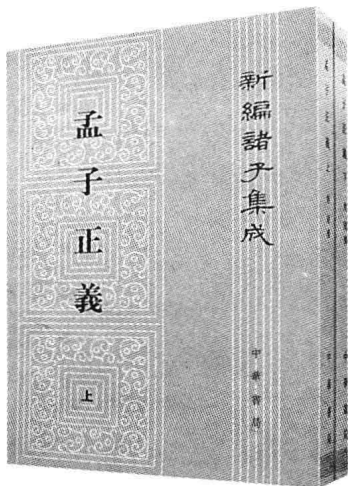 新編諸子集成
孟子正義
上
中華書局